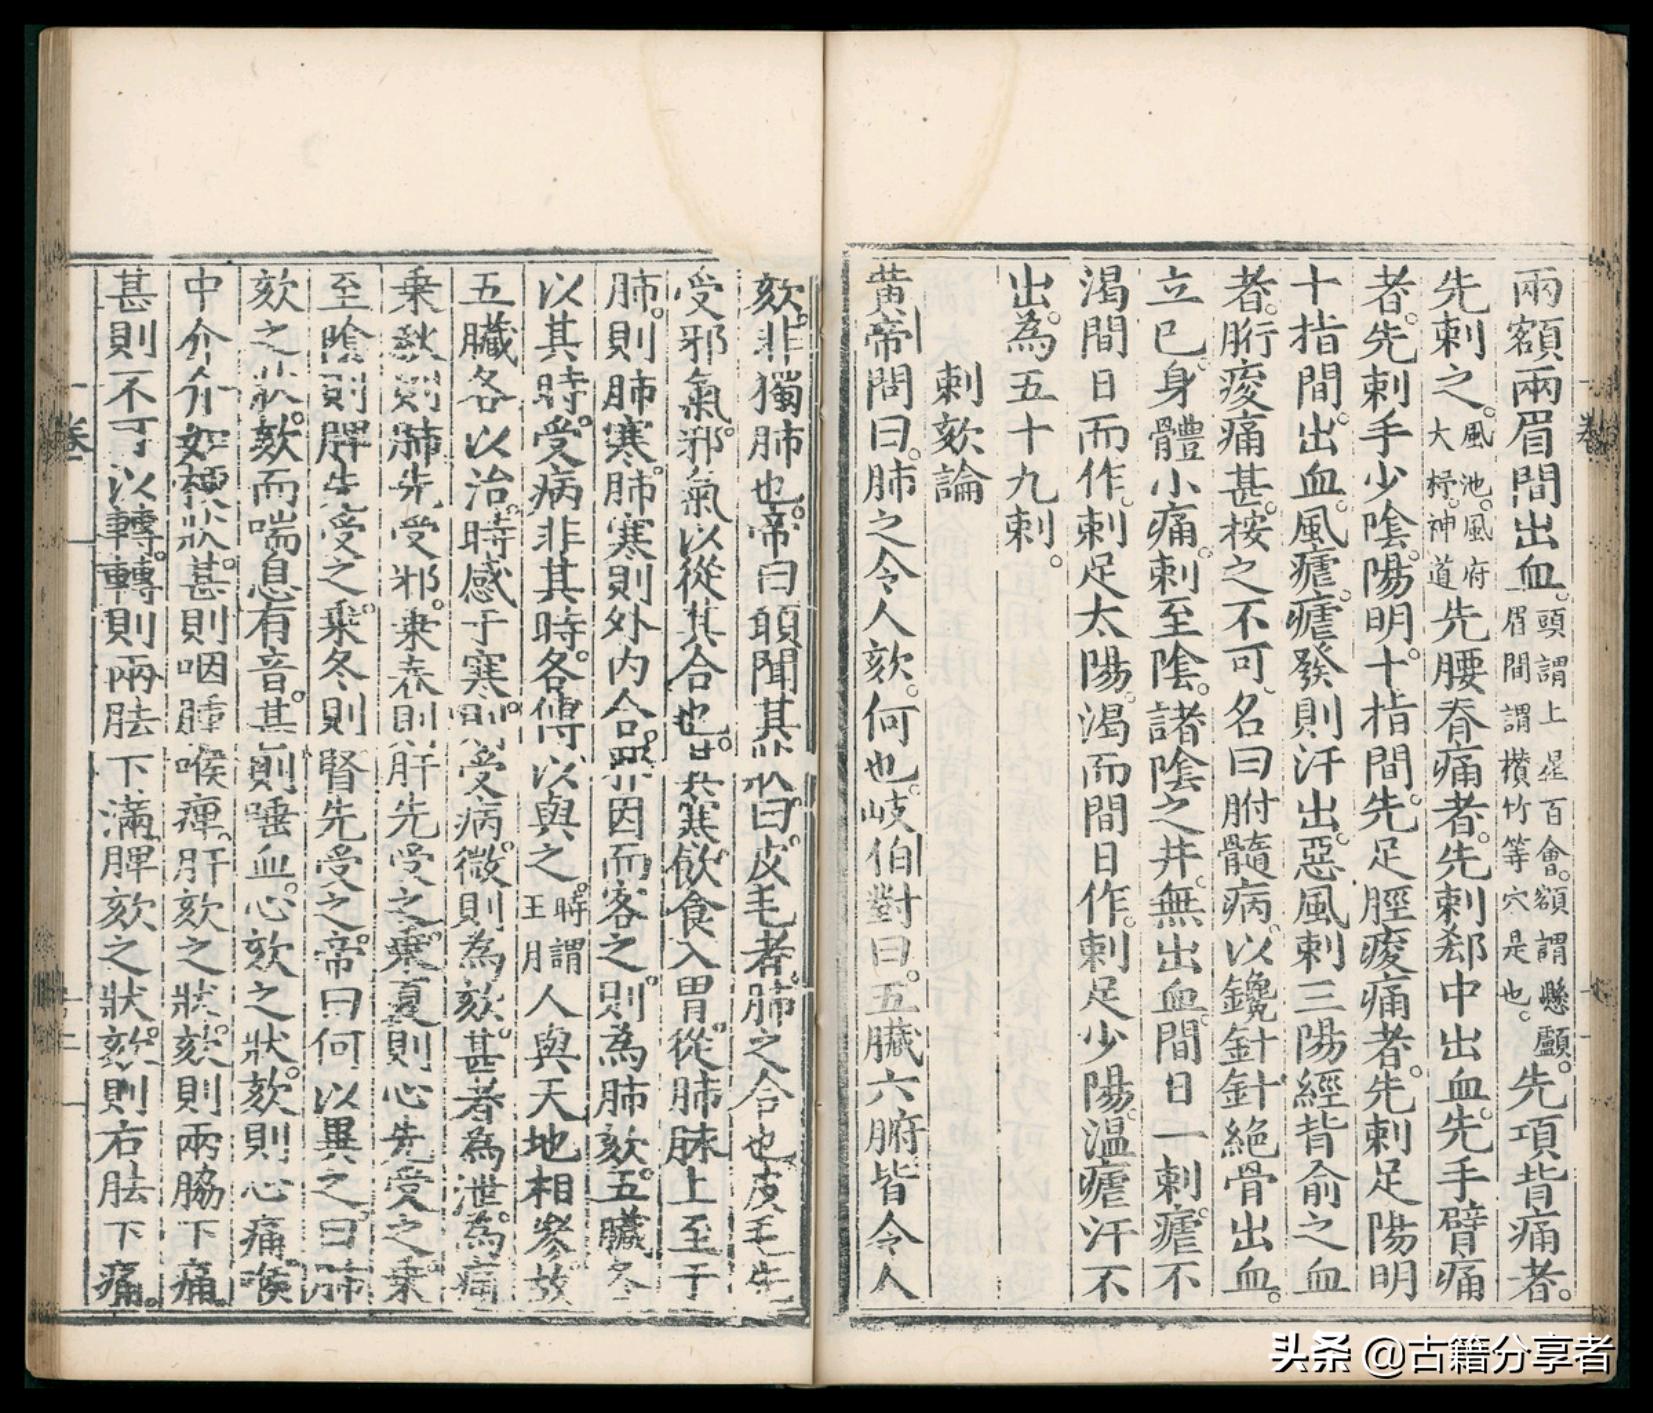 兩額兩眉間出血。頭謂上星百會。額謂懸顱。眉間謂攢竹等穴是也。先項背痛者。
先刺之。風池。風府大杼。神道先腰脊痛者。先刺郄中出血。先手臂痛
者。先刺手少陰。陽明。十指間。先足脛痠痛者。先刺足陽明
十指間。出血。風瘧。瘧發則汗出。惡風刺三陽經背俞之血
者。胻痠痛甚。按之不可。名曰胕髓病。以鑱針針絕骨出血。
立已。身體小痛。刺至陰。諸陰之井。無出血。間日一刺。瘧不
渴間日而作。刺足太陽。渴而間日作。刺足少陽。溫瘧汗不
出。為五十九刺。
刺欬論
黃帝問曰。肺之令人欬。何也。岐伯對曰。五臟六腑皆令人
欬。非獨肺也。帝曰願聞其狀曰。皮毛者。肺之合也皮毛先
受邪氣。邪氣以從其合也。其寒飲食入胃。從肺脉上至于
肺。則肺寒。肺寒則外內合邪因而客之。則為肺欬。五臟各
以其時。受病非其時。各傳以與之。時謂王月人與天地相參。故
五臟各以治。時感于寒則受病。微則為欬。甚者為泄。為痛
乘秋則肺先受邪。乘春則肝先受之。乘夏則心先受之。乘
至陰則脾先受之。乘冬則腎先受之。帝曰何以異之。曰肺
欬之狀。欬而喘息有音。甚則唾血。心欬之狀。欬則心痛。喉
中介介如梗狀。甚則咽腫喉痺。肝欬之狀。欬則兩脇下痛。
甚則不可以轉。轉則兩胠下滿。脾欬之狀。欬則右胠下痛。
卷
卷一
头条 @古籍分享者